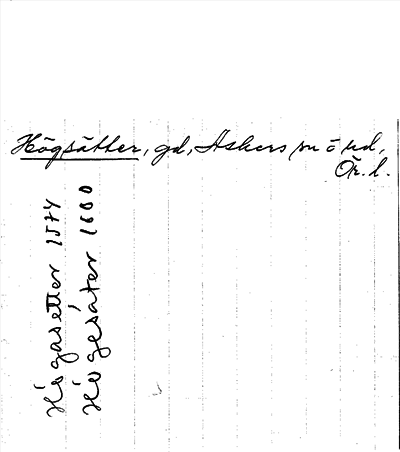 Högsätter, gd, Askers sn o hd,
Ör. l.
Högasetter 1574
Högesäter 1600